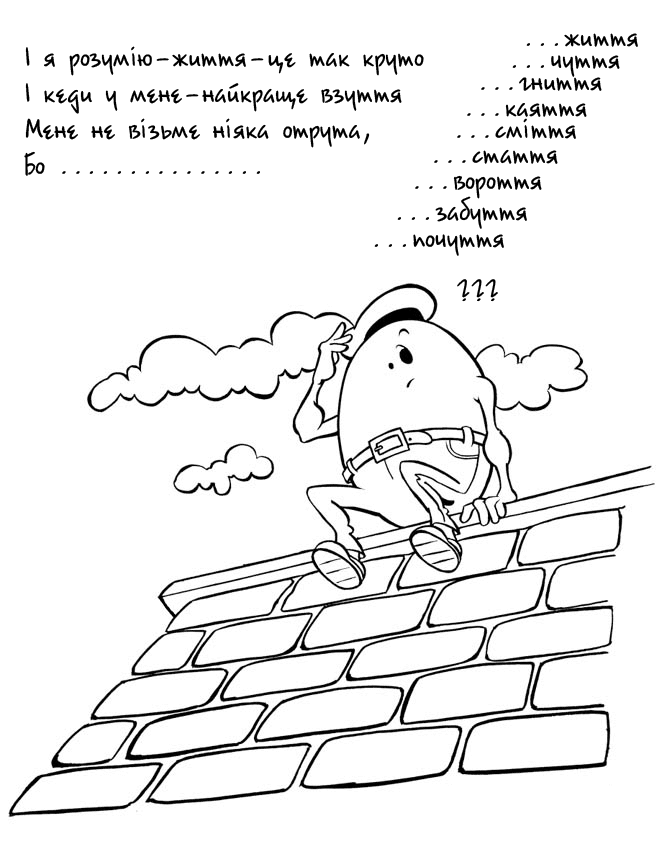 І я розумію-життя-це так круто
І кеди у мене-найкраще взуття
Мене не візьме ніяка отрута,
Бо ...............
...життя
...чуття
...гниття
...каяття
...сміття
...стаття
...вороття
...забуття
...почуття
???